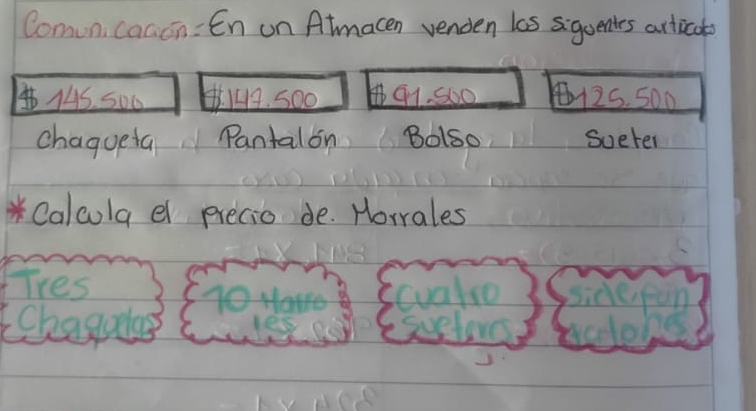 Comunicación: En un Almacen venden los siguentes articulos
$ 145.500 $ 147.500 $ 91.500 $ 125.500
chaqueta Pantalón Bolso Sueter
*Calcula el precio de. Morrales
Tres 10 Morra cuatro siete pan
Chaquetas les sueteres talones